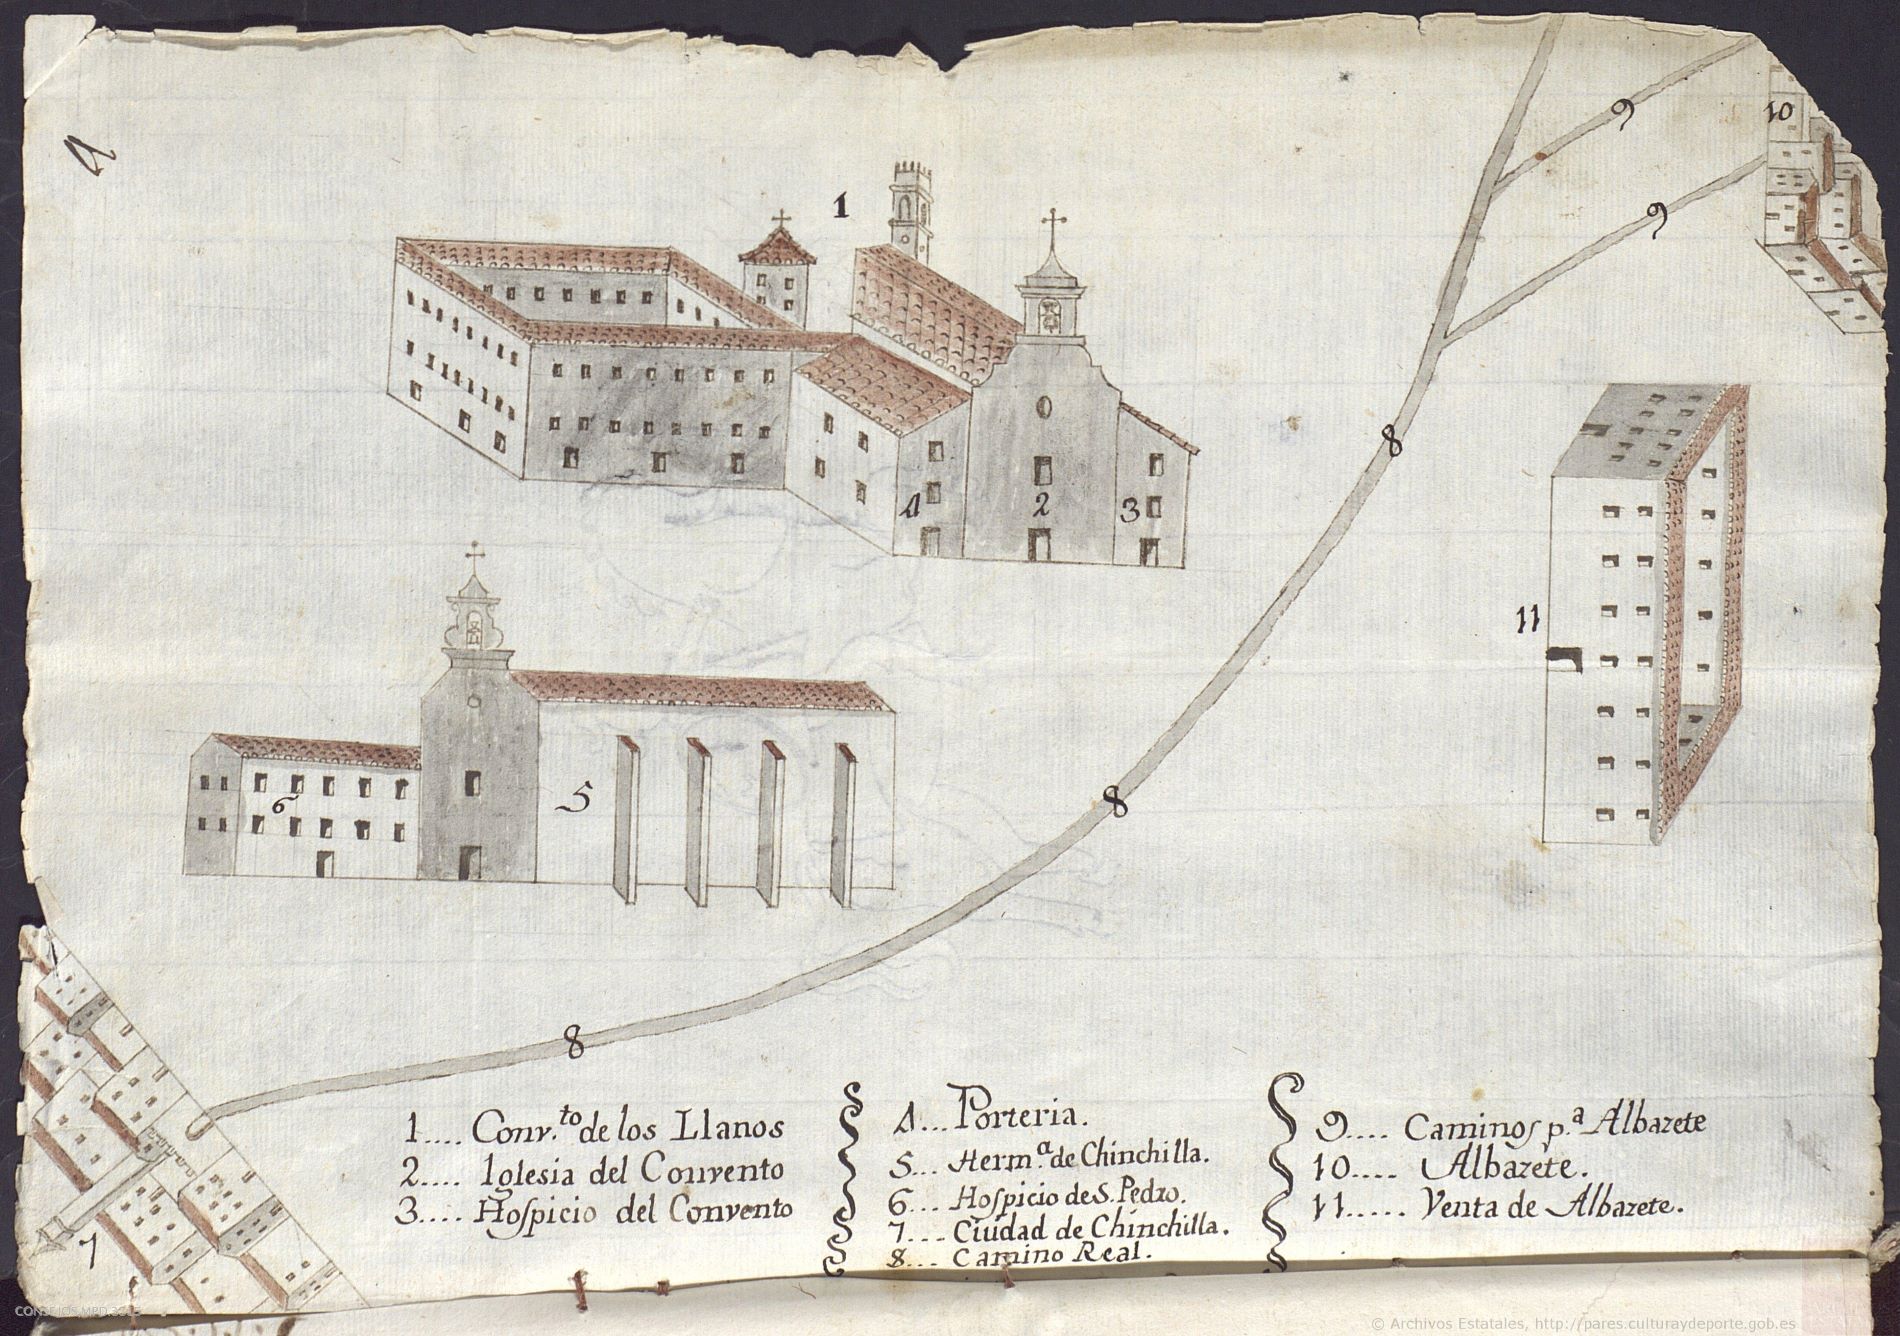 A
1
10
9
9
8
4
2
3
11
5
6
8
8
7
1.... Conv.to de los Llanos
2.... Iglesia del Convento
3.... Hospicio del Convento
4... Porteria.
5... Herm.a de Chinchilla.
6... Hospicio de S. Pedro.
7.... Ciudad de Chinchilla.
8... Camino Real.
9.... Caminos p.a Albazete
10.... Albazete.
11..... Venta de Albazete.
© Archivos Estatales, http://pares.culturaydeporte.gob.es